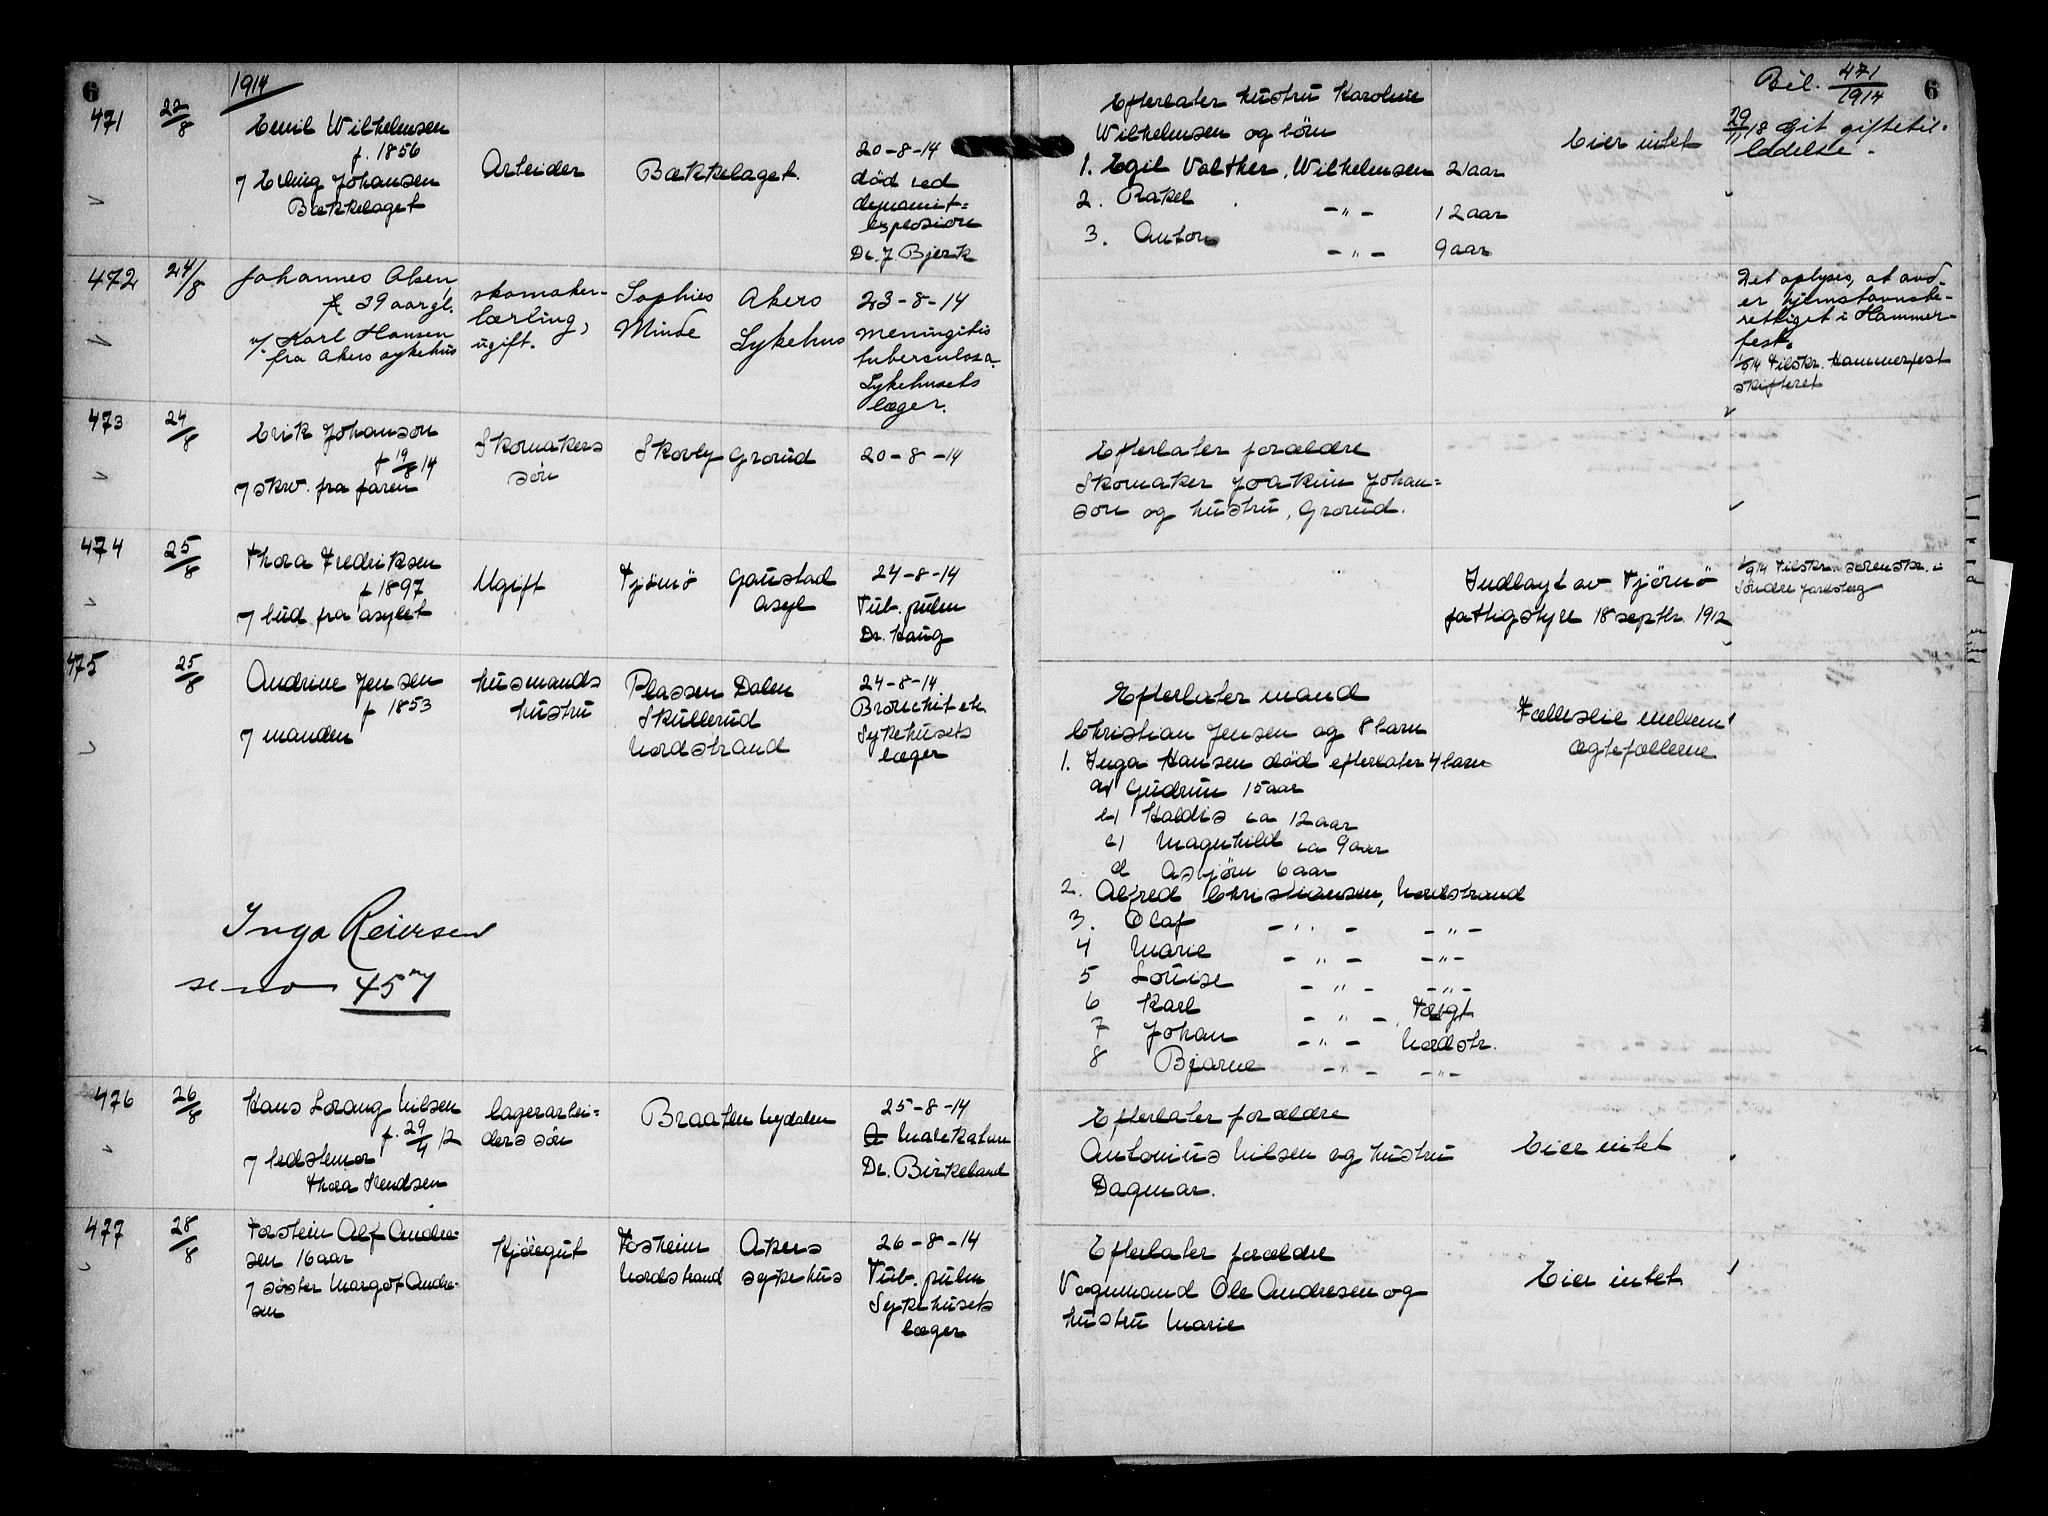 6
1914
471
22/8
Emil Wilhelmsen
f. 1856
v/ Erling Johansen
Bækkelaget
Arbeider
Bækkelaget.
20-8-14
død ved
dynamit=
explosion
Dr. J. Bjerk
Efterlater hustru Karoline
Wilhelmsen og børn
1. Egil Valther, Wilhelmsen 21 aar
2. Rakel -"- 12 aar
3. Anton -"- 9 aar
Eier intet
Bil. 471/1914
6
29/11 18 Git giftetil-
ladelse.
472
24/8
Johannes Olsen,
39 aar gl.
v/ Karl Hansen
fra Akers sykehus
skomaker-
lærling,
ugift.
Sophies
Minde
Akers
Sykehus
23-8-14
meningitis
tuberculosa.
Sykehusets
læger.
Det oplyses, at avd.
er hjemstavnsbe-
rettiget i Hammer-
fest.
1/9 14 tilskr. Hammerfest
skifteret
473
24/8
Erik Johanson
f 19/8 14
v/ skr. fra faren
Skomakers
søn
Skovly Grorud
20-8-14
Efterlater forældre
Skomaker Joakim Johan=
son og hustru, Grorud.
474
25/8
Thora Fredriksen
f 1897
v/ bud fra asylet
Ugift
Tjømø
Gaustad
asyl
24-8-14
Tub. pulm
Dr. Haug
Indlagt av Tjømø
fattigstyre 18 septbr. 1912
1/9 14 tilskr. sorenskr. i
Søndre Jarlsberg
475
25/8
Andrine Jensen
f 1853
v/ manden
husmands
hustru
Plassen Dalen
Skullerud
Nordstrand
24-8-14
Bronchit etc
Sykehusets
læger
Efterlater mand
Christian Jensen og 8 barn
1. Inga Hansen død efterlater 4 barn
a) Gudrun 15 aar
b) Haldis ca 12 aar
c) Magnhild ca 9 aar
d Asbjörn 6 aar
2. Alfred Christiansen, Nordstrand
3. Olaf -"- -"-
4 Marie -"- -"-
5 Louise -"- -"-
6 Karl -"-,
7 Johan -"- Nordstr.
8 Bjarne -"- -"-
Fælleseie mellem
ægtefællerne
Inga Reiersen
se no 457
476
26/8
Hans Lorang Nilsen
f. 29/4 12
v/ bedstemor
Thora Svendsen
lagerarbei=
ders søn
Braaten Nydalen
25-8-14
Dr. Birkeland
Efterlater forældre
Antonius Nilsen og hustru
Dagmar.
Eier intet
477
28/8
Torstein Alf Andre-
sen 16 aar
v/ søster Margot Andre-
sen
Kjöregut
Nordstrand
Akers
sykehus
26-8-14
Tub. pulm
Sykehusets
læger
Efterlater forældre
Vognmand Ole Andresen og
hustru Marie
Eier intet